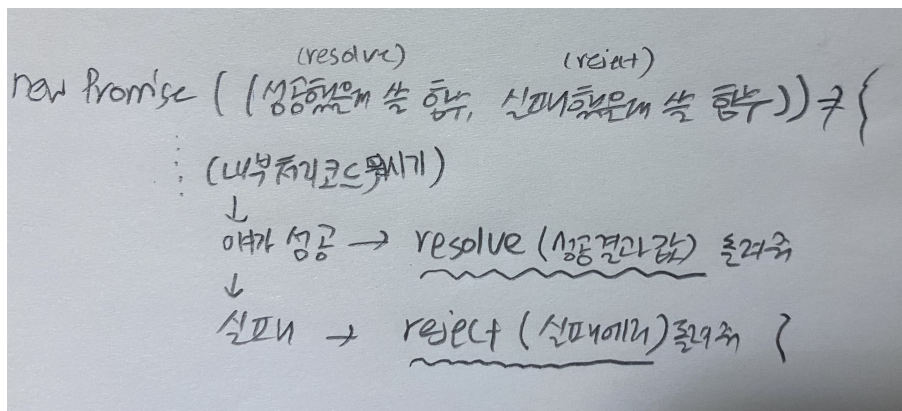 (resolve) (reject)
new Promise ((성공했을때 쓸 함수, 실패했을때 쓸 함수)) => {
(내부처리코드 뭐시기)
↓
얘가 성공 → resolve (성공결과값) 돌려줘
↓
실패 → reject (실패에러) 돌려줘 }